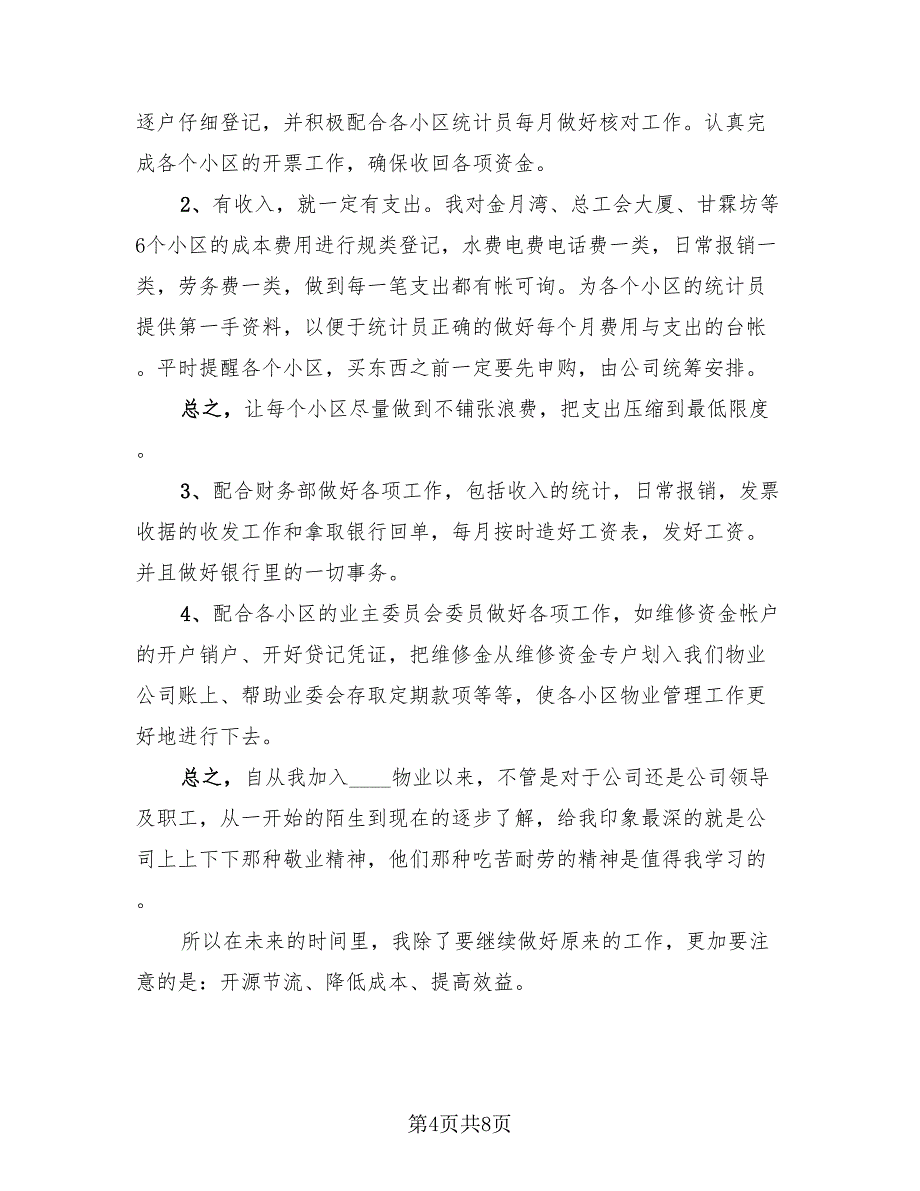 逐户仔细登记，并积极配合各小区统计员每月做好核对工作。认真完
成各个小区的开票工作，确保收回各项资金。
2、有收入，就一定有支出。我对金月湾、总工会大厦、甘霖坊等
6个小区的成本费用进行规类登记，水费电费电话费一类，日常报销一
类，劳务费一类，做到每一笔支出都有帐可询。为各个小区的统计员
提供第一手资料，以便于统计员正确的做好每个月费用与支出的台帐
。平时提醒各个小区，买东西之前一定要先申购，由公司统筹安排。
总之，让每个小区尽量做到不铺张浪费，把支出压缩到最低限度
。
3、配合财务部做好各项工作，包括收入的统计，日常报销，发票
收据的收发工作和拿取银行回单，每月按时造好工资表，发好工资。
并且做好银行里的一切事务。
4、配合各小区的业主委员会委员做好各项工作，如维修资金帐户
的开户销户、开好贷记凭证，把维修金从维修资金专户划入我们物业
公司账上、帮助业委会存取定期款项等等，使各小区物业管理工作更
好地进行下去。
总之，自从我加入____物业以来，不管是对于公司还是公司领导
及职工，从一开始的陌生到现在的逐步了解，给我印象最深的就是公
司上上下下那种敬业精神，他们那种吃苦耐劳的精神是值得我学习的
。
所以在未来的时间里，我除了要继续做好原来的工作，更加要注
意的是：开源节流、降低成本、提高效益。
第4页共8页